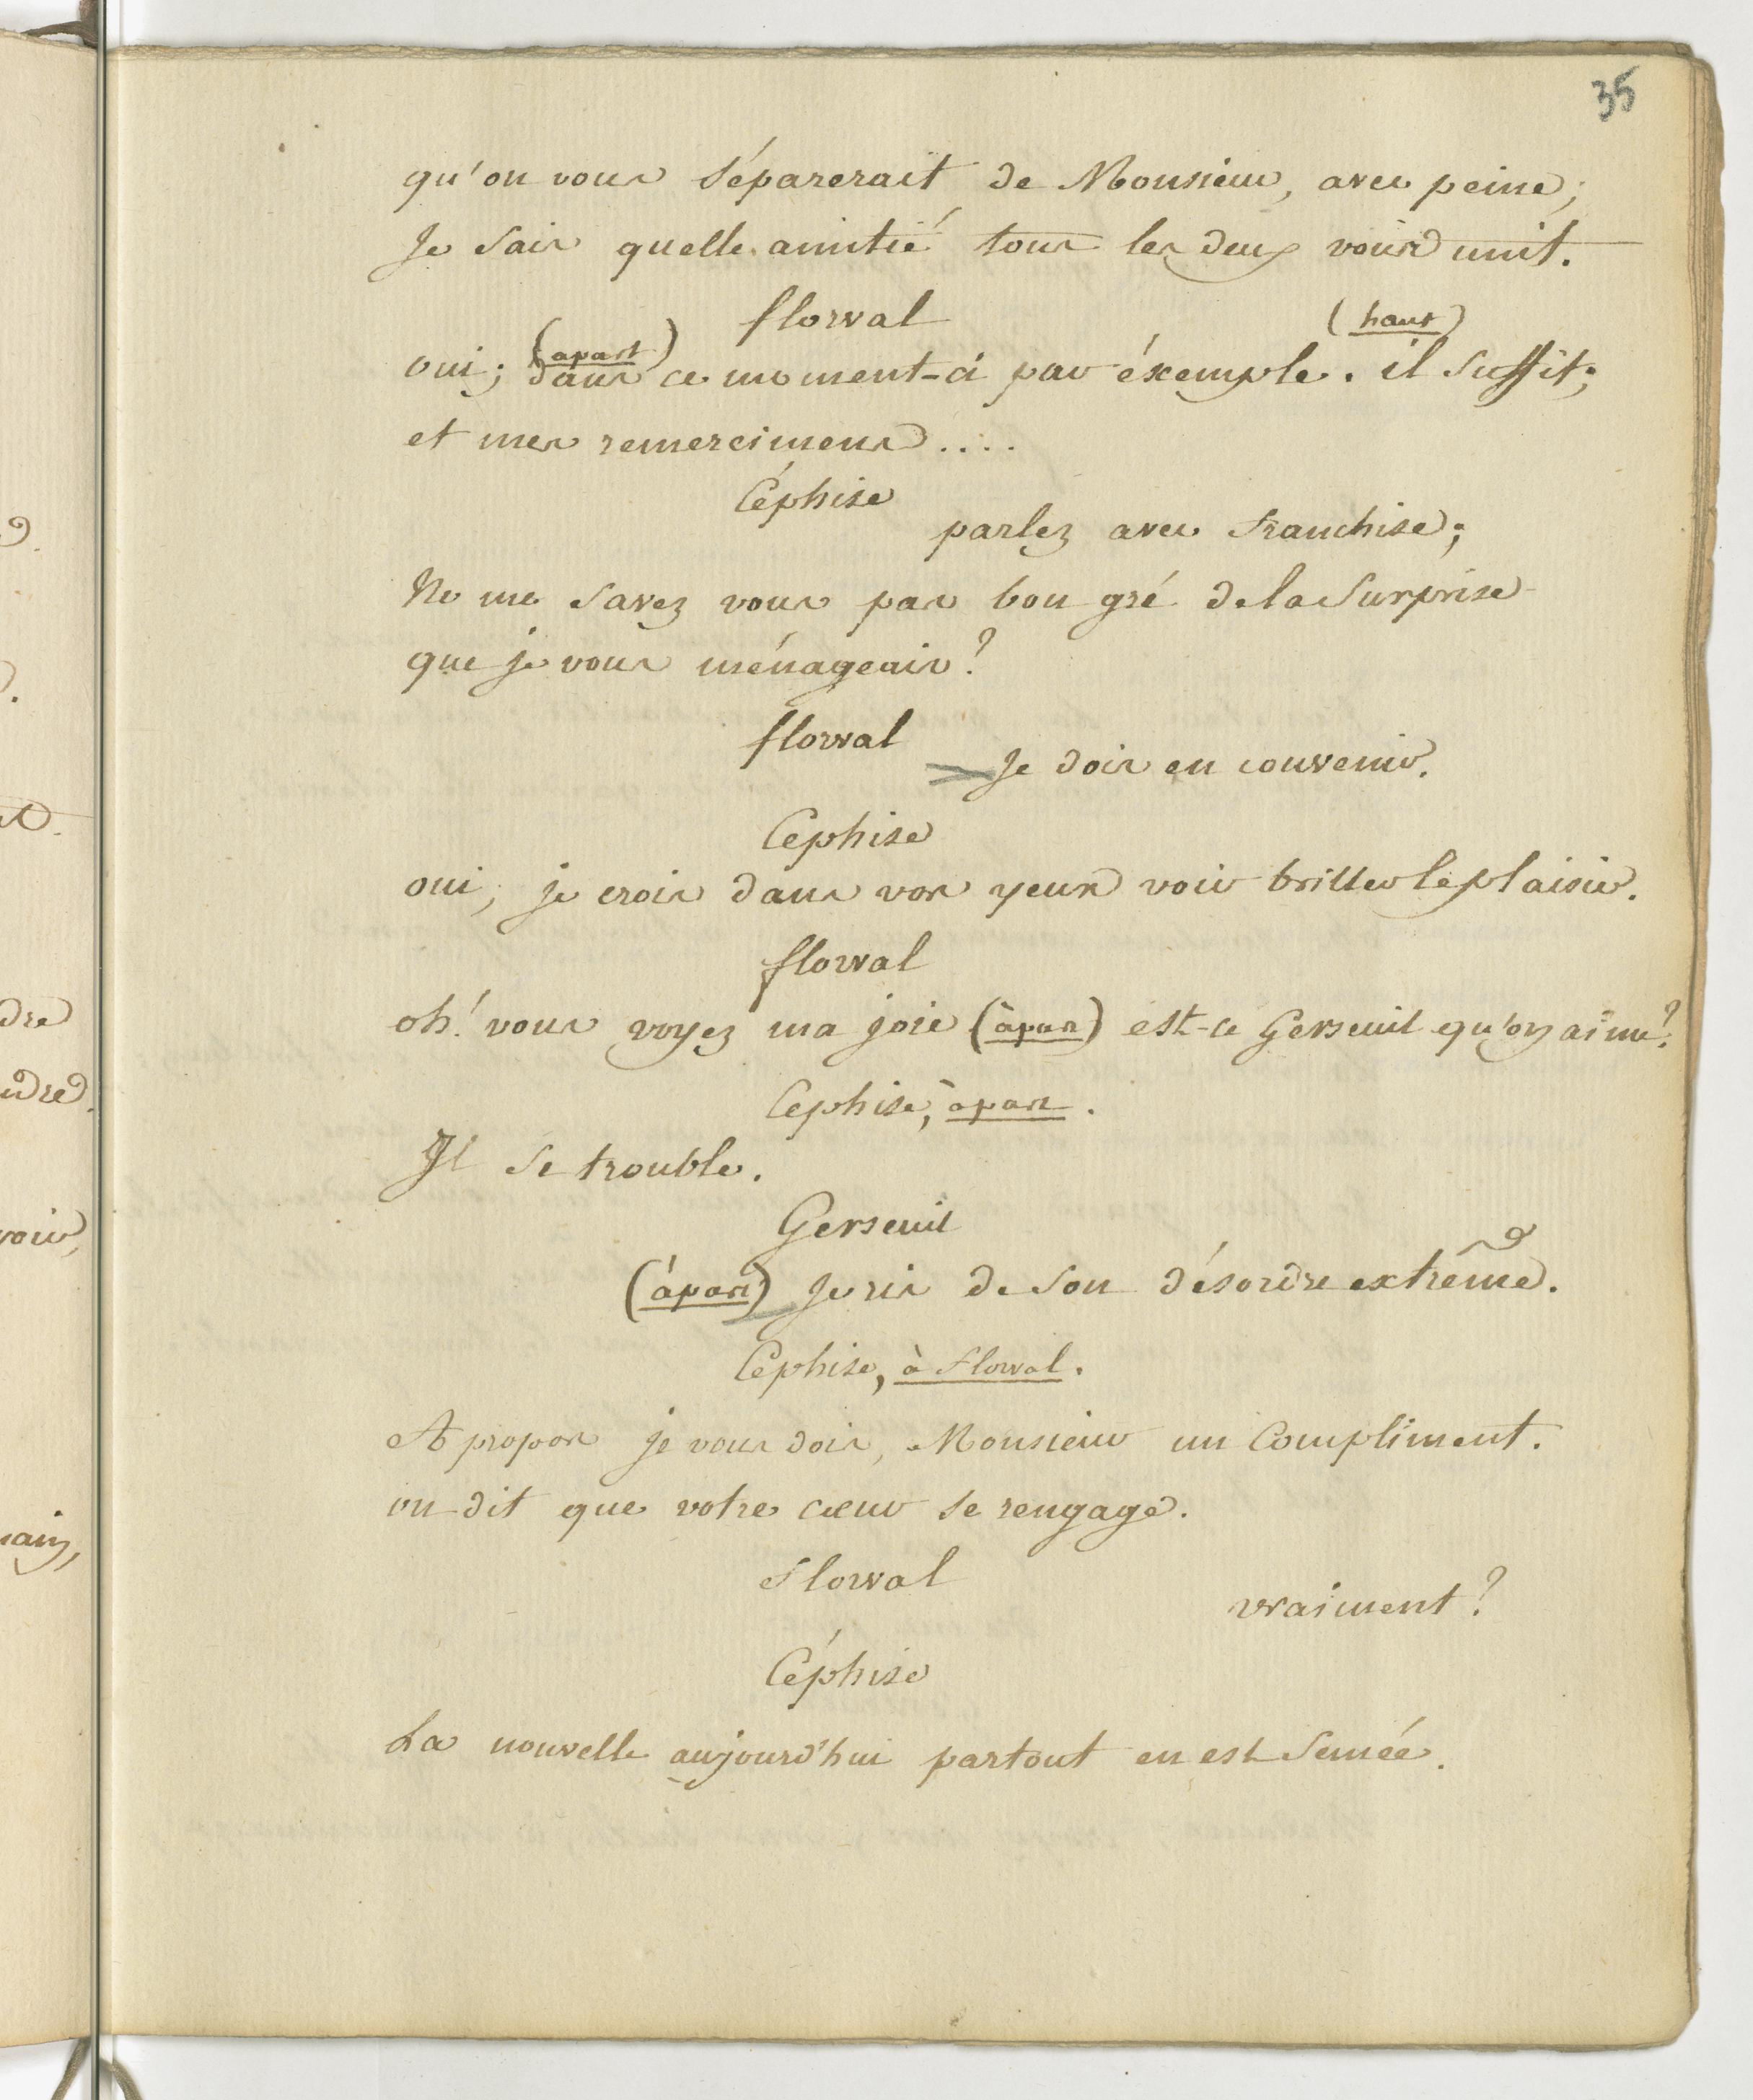 35
qu'on vous séparerait de Monsieur, avec peine;
Je sais quelle amitié tous les deux vous unit.
florval
oui; (apart) dans ce moment-ci par éxemple. (haut) il suffit;
et mes remercimens....
Céphise
parlez avec franchise;
Ne me savez vous pas bon gré de la surprise
que je vous ménageais?
florval
Je dois en convenir.
Cephise
oui, je crois dans vos yeux voir briller le plaisir.
florval
oh! vous voyez ma joie (àpart) est-ce Gerseuil qu'on aime?
Cephise, àpart.
Il se trouble.
Gerseuil
(àpart) Je ris de son désordre extrême.
Céphise, à florval.
A propos je vous dois, Monsieur un Compliment.
on dit que votre cœur se rengage.
Florval
vraiment?
Céphise
La nouvelle aujourd'hui partout en est semée.